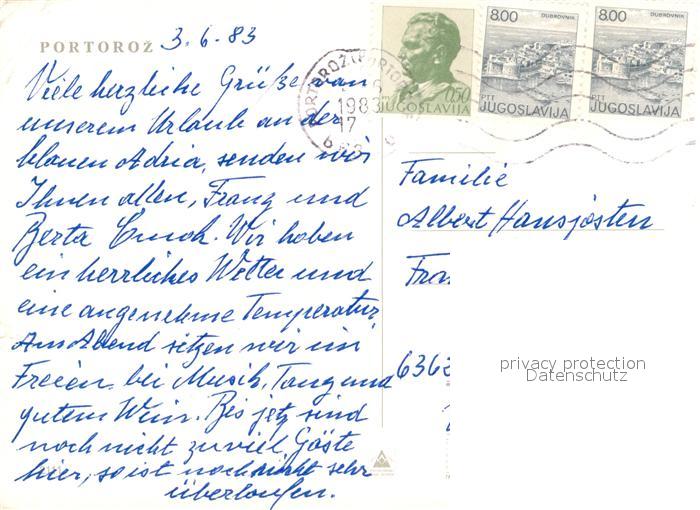 PORTOROŽ 3.6.83
Viele herzliche Grüße von
unserem Urlaub an der
blauen Adria, senden wir
Ihnen allen, Franz und
Berta
Wir haben
ein herrliches Wetter und
eine angenehme Temperatur.
Am Abend sitzen wir im
Freien bei Musik, Tanz und
gutem Wein. Bis jetz sind
noch nicht zuviel Gäste
hier, so ist noch nicht sehr
überlaufen.
1983
17
0,50
JUGOSLAVIJA
8.00 DUBROVNIK
PTT
JUGOSLAVIJA
8.00 DUBROVNIK
PTT
JUGOSLAVIJA
Familie
Albert Hansjosten
636
privacy protection
Datenschutz